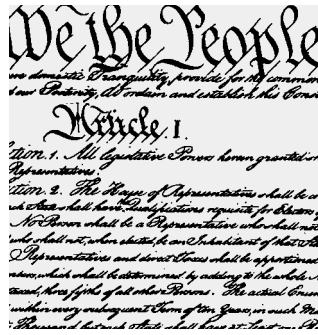 We the People
ure domestic Tranquility, provide for the common
d our Posterity, do ordain and establish this Cons
Article I.
ction. 1. All legislative Powers herein granted s
Representatives.
ction. 2. The House of Representatives shall be co
ach State shall have the Qualifications requisite for Electors of
No Person shall be a Representative who shall not
who shall not, when elected, be an Inhabitant of that Sta
Representatives and direct Taxes shall be apportioned
umbers, which shall be determined by adding to the whole N
Taxed, three fifths of all other Persons. The actual Enum
within every subsequent Term of ten Years, in such M
Thousand, but each State shall have at Least one R